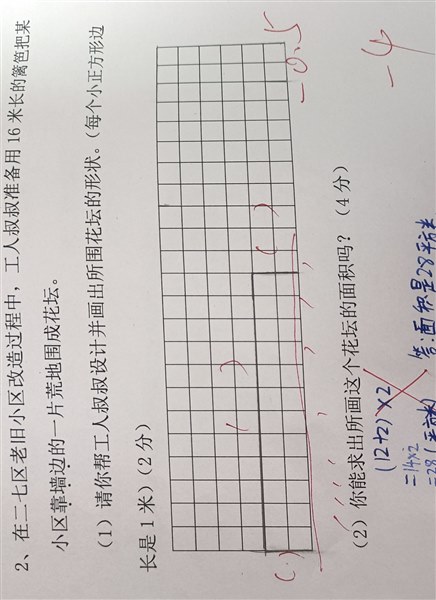 2、在二七区老旧小区改造过程中，工人叔叔准备用 16 米长的篱笆把某
小区靠墙边的一片荒地围成花坛。
（1）请你帮工人叔叔设计并画出所围花坛的形状。（每个小正方形边
长是 1 米）（2 分）
-0.5
（2）你能求出所画这个花坛的面积吗？（4 分）
-4
(12+2)×2
=14×2
=28(平方米)
答:面积是28平方米